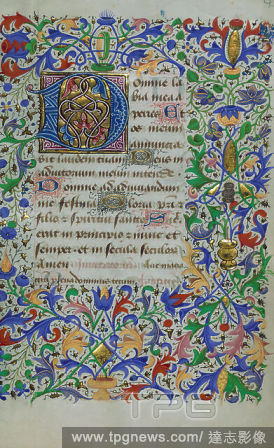 Domine la
bia mea a
peries Et
os meum
bit laudem tuam Deus in
Domine ad adiuvandum
me festina Gloria patri et
filio et spiritui sancto S
erat in principio et nunc et
semper et in secula seculoru
amen Ave maria
plena dominus tecum
TPG
www.tpgnews.com / 達志影像